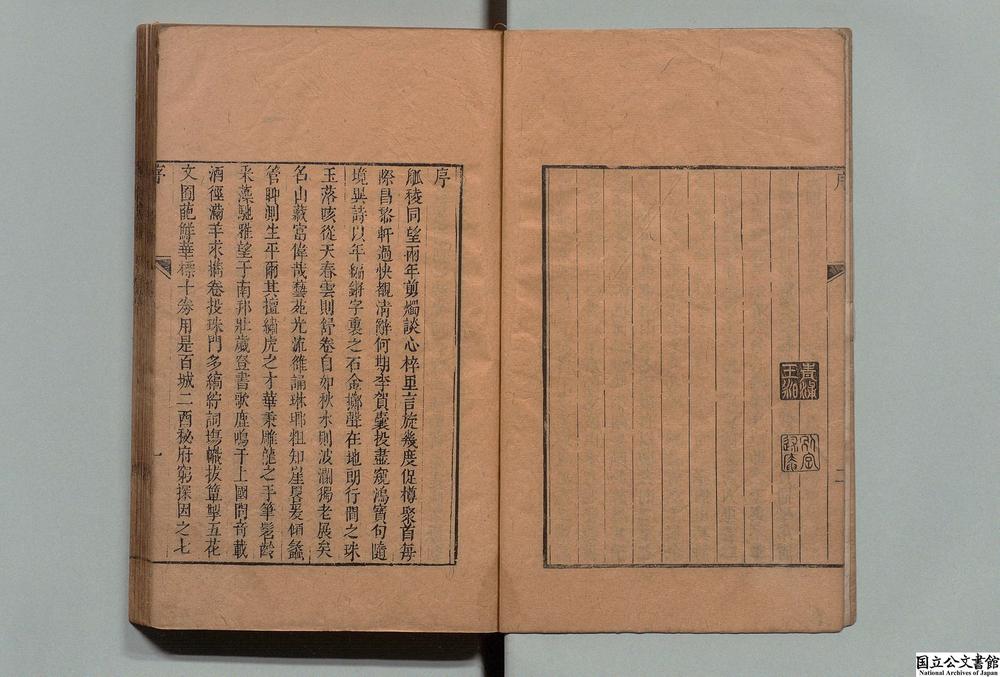 序
二
序
觚稜同望兩年剪燭談心梓里言旋幾度促樽聚首每
際昌黎軒過快覩淸辭何期李賀囊投盡窺鴻寳句隨
境異詩以年編鏘字裏之石金擲聲在地朗行間之珠
玉落咳從天春雲則舒卷自如秋水則波瀾獨老展矣
名山藏富偉哉藝苑光流雒誦琳瑯粗知崖畧爰傾蠡
管聊測生平爾其擅繡虎之才華秉雕龍之手筆髫齡
采藻馳雅望于南邦壯歲登書歌鹿鳴于上國問奇載
酒徑滿羊求摛卷投珠門多縞紵詞塲幟拔簞掣五花
文囿葩鮮華標十劵用是百城二酉秘府窮探因之七
序
一
国立公文書館
National Archives of Japan